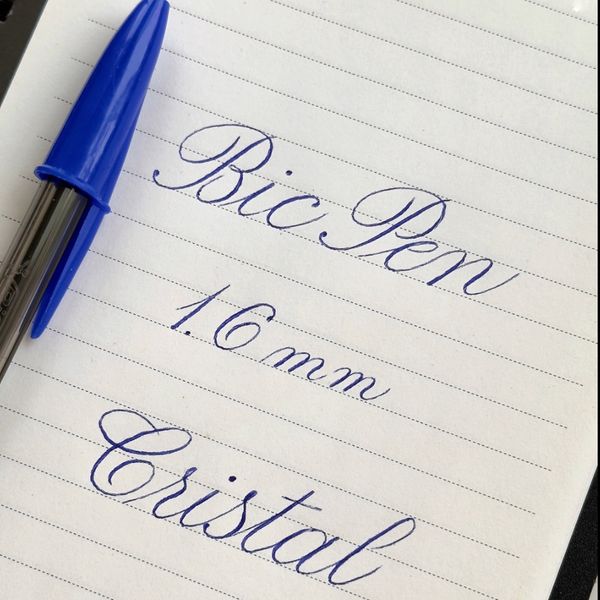 Bic Pen
1.6 mm
Cristal